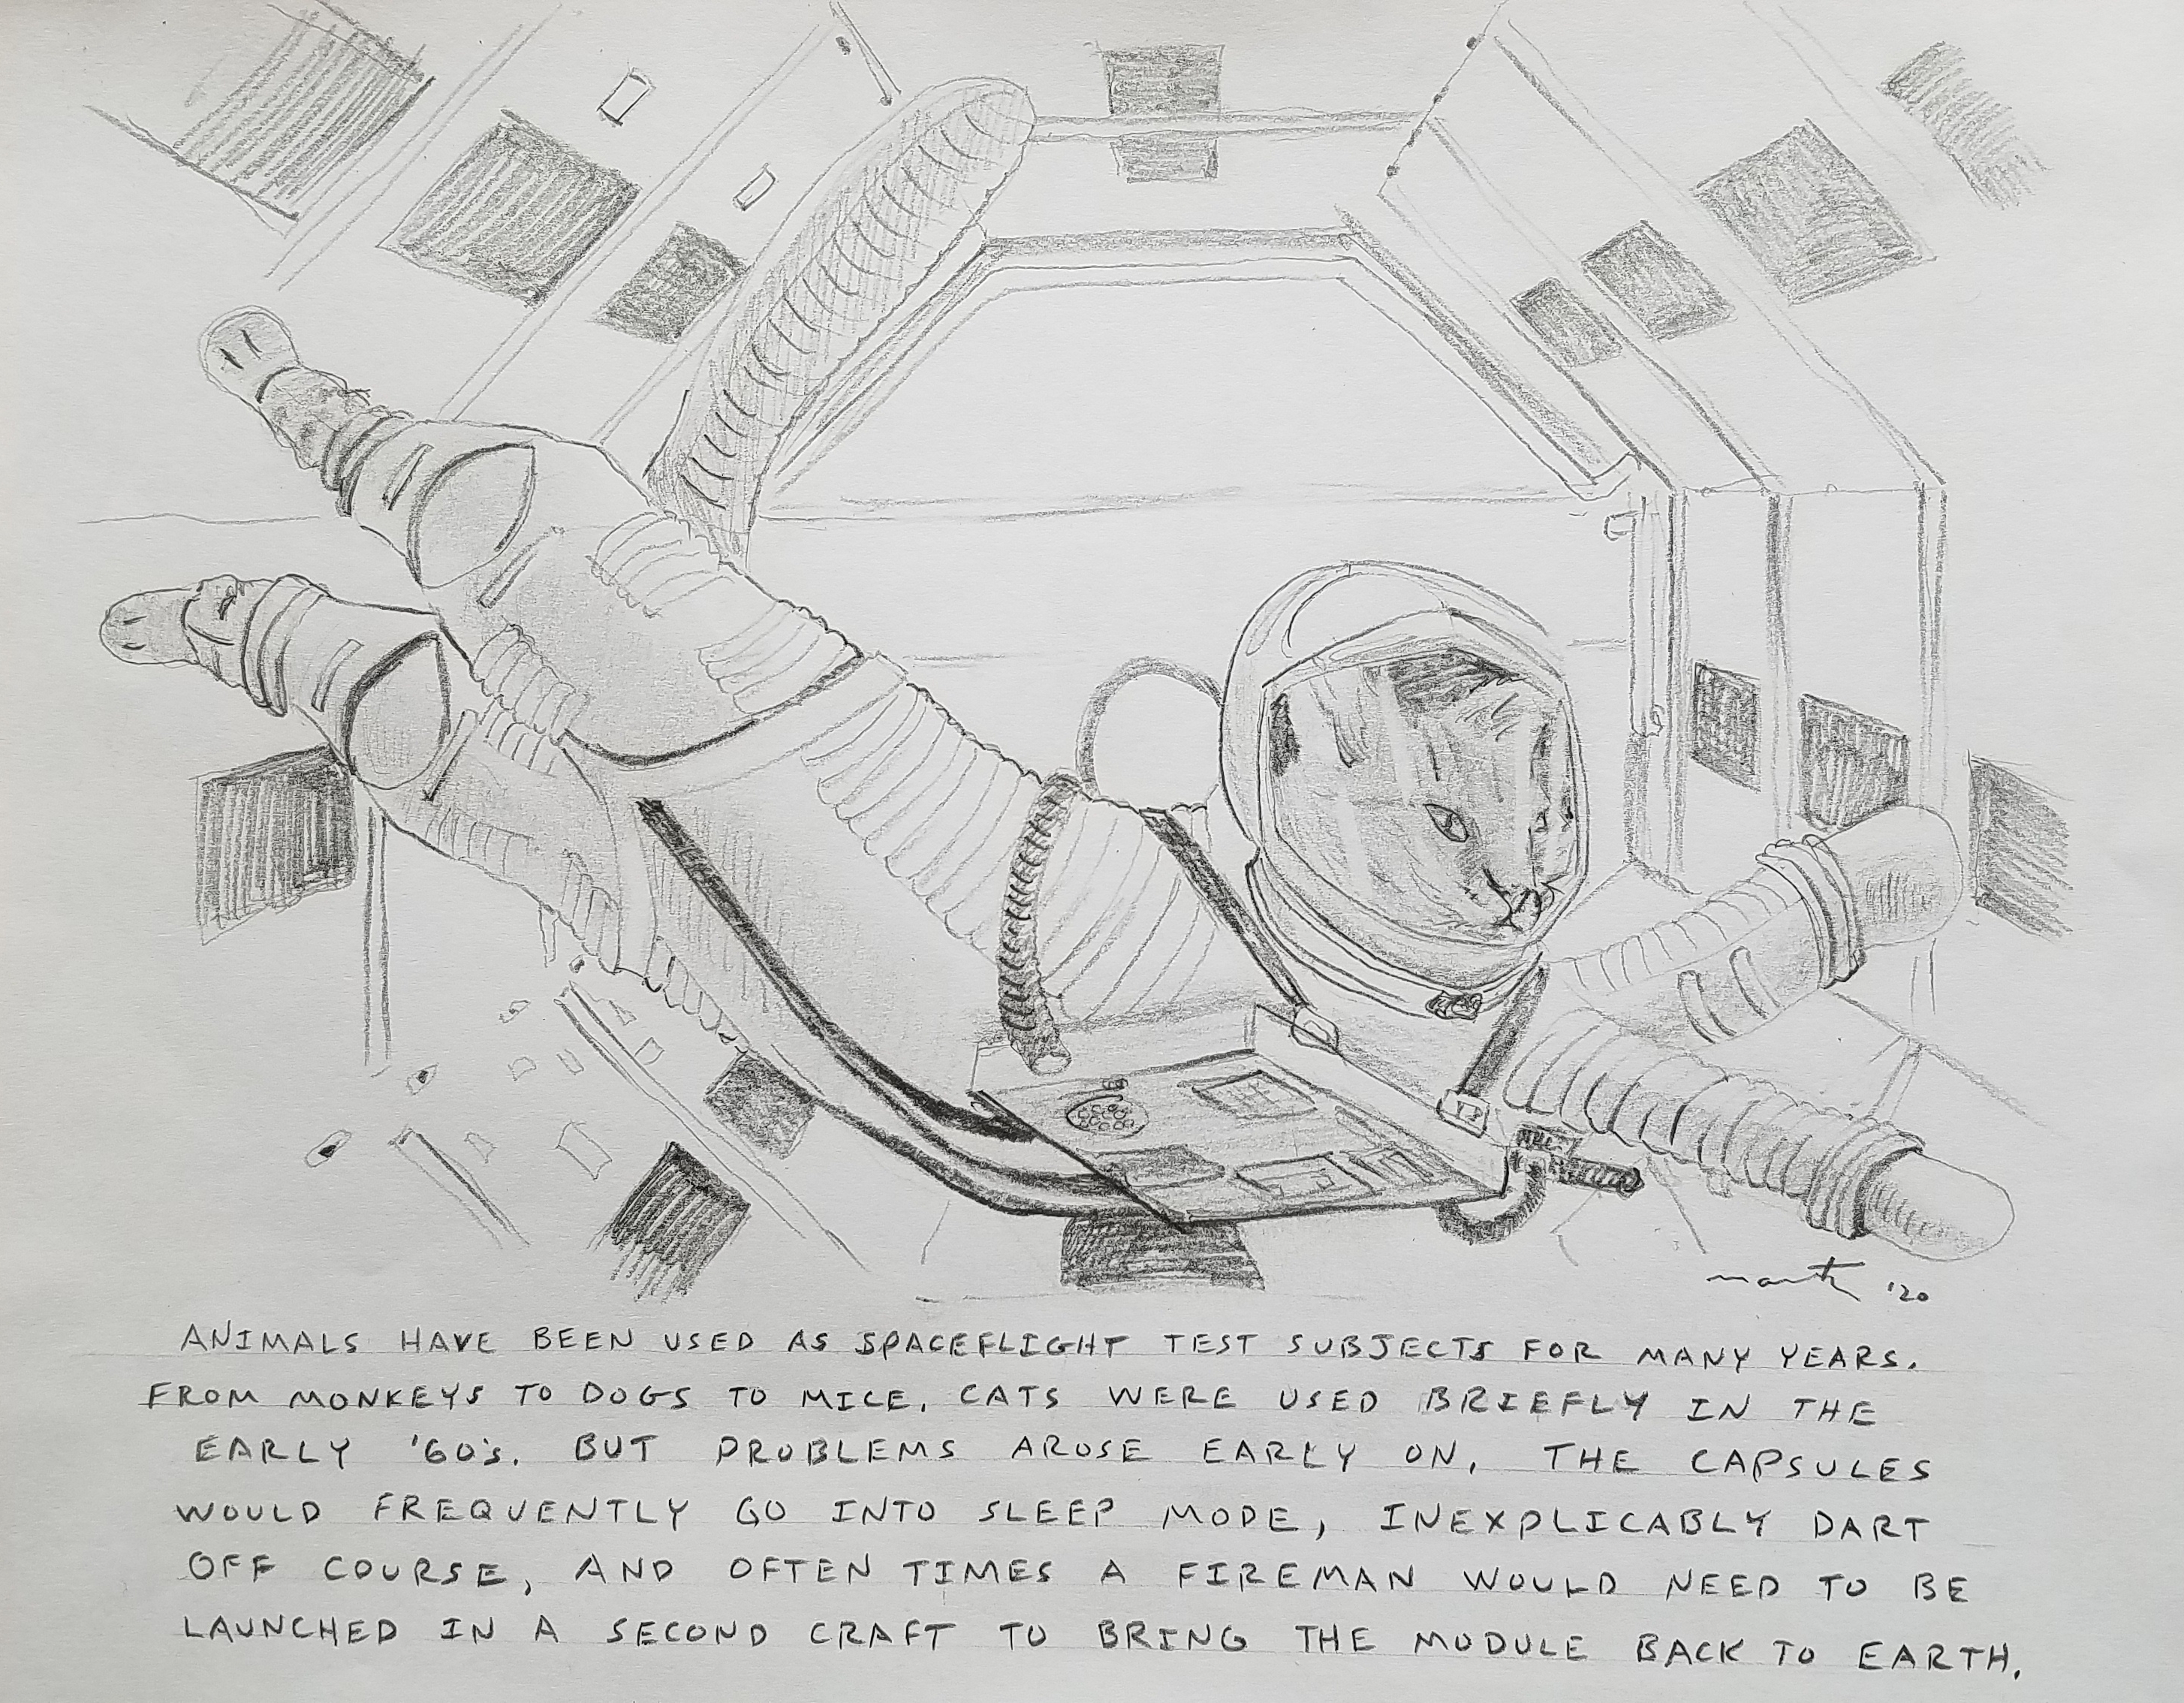 ANIMALS HAVE BEEN USED AS SPACEFLIGHT TEST SUBJECTS FOR MANY YEARS.
FROM MONKEYS TO DOGS TO MICE. CATS WERE USED BRIEFLY IN THE
EARLY '60's. BUT PROBLEMS AROSE EARLY ON. THE CAPSULES
WOULD FREQUENTLY GO INTO SLEEP MODE, INEXPLICABLY DART
OFF COURSE, AND OFTEN TIMES A FIREMAN WOULD NEED TO BE
LAUNCHED IN A SECOND CRAFT TO BRING THE MODULE BACK TO EARTH.
'20